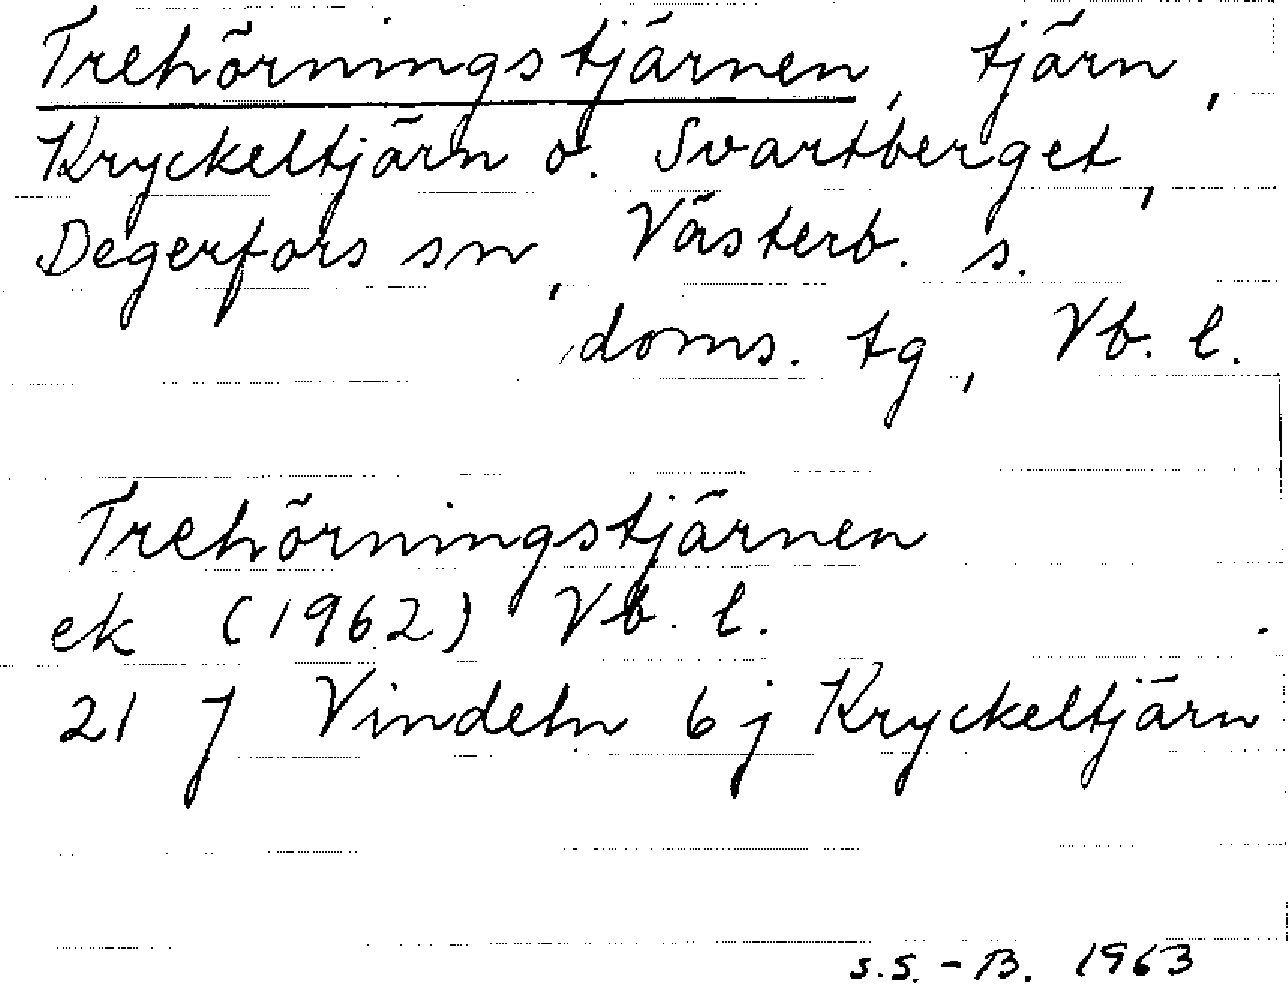 Trehörningstjärnen, tjärn,
Kryckeltjärn o. Svartberget,
Degerfors sn, Västerb. s.
doms. tg, Vb. l.
Trehörningstjärnen
ek (1962) Vb. l.
21 J Vindeln 6 j Kryckeltjärn
S.S.-B. 1963